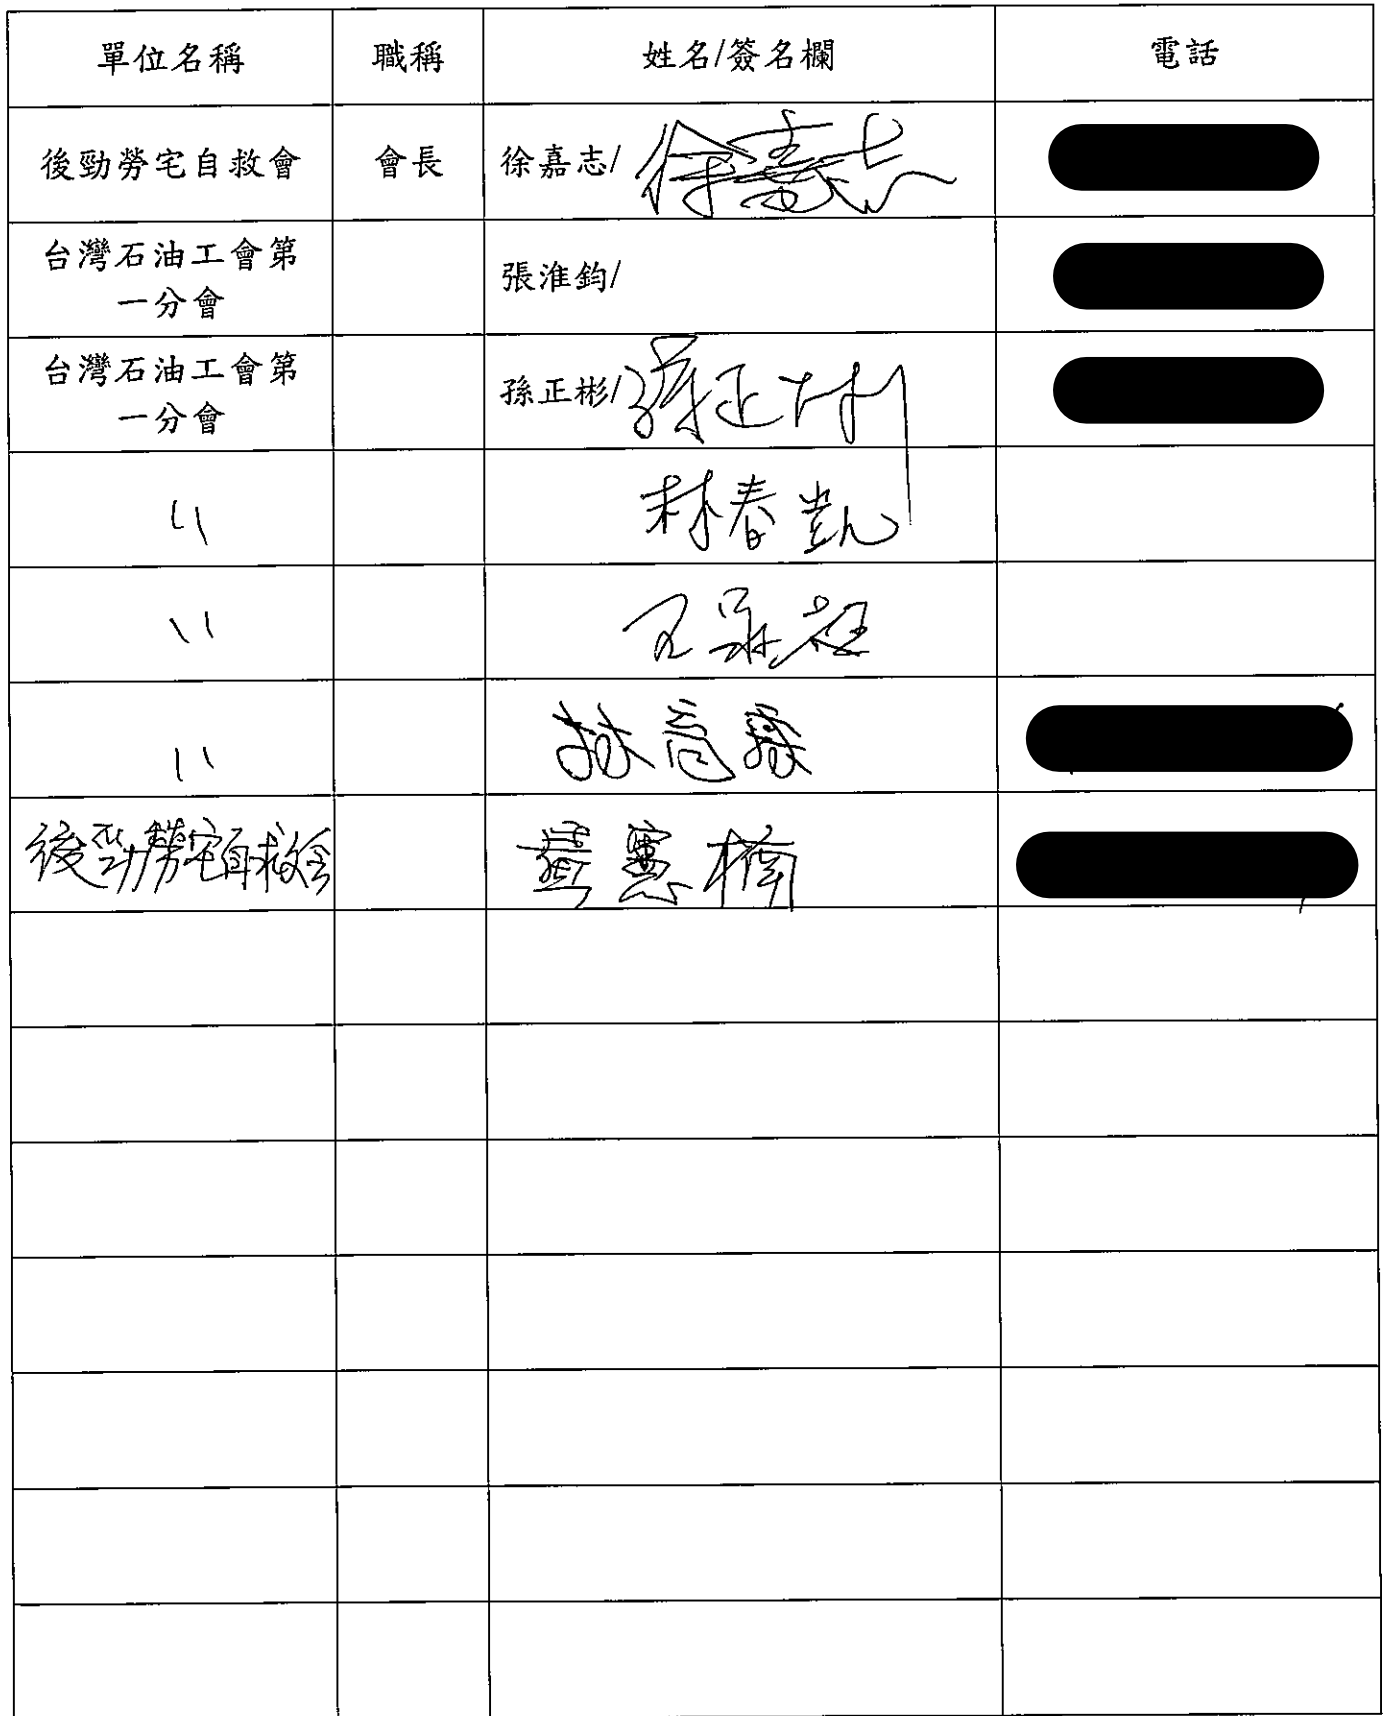 單位名稱 職稱 姓名/簽名欄 電話
後勁勞宅自救會 會長 徐嘉志/ 徐嘉志
台灣石油工會第
一分會
張淮鈞/
台灣石油工會第
一分會
孫正彬/ 孫正彬
〃 林春凱
〃 王
〃 林
後勁勞宅自救會 憲楠